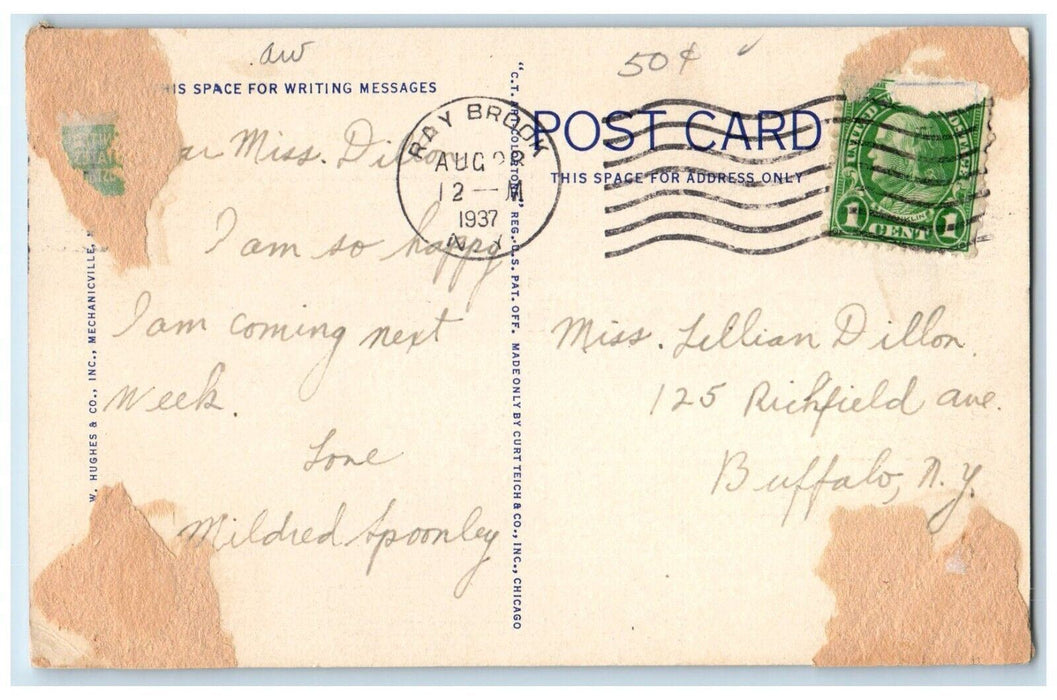 aw
50¢
HIS SPACE FOR WRITING MESSAGES
POST CARD
THIS SPACE FOR ADDRESS ONLY
RAY BROOK
AUG
12 — M
1937
N. Y.
1 CENT 1
ar Miss. Dillon
I am so happy
I am coming next
Week.
Love
Mildred Spoonley
Miss. Lillian Dillon.
125 Richfield ave.
Buffalo, N.Y.
W. HUGHES & CO., INC., MECHANICVILLE, N
"C.T. ART-COLORTONE" REG. U.S. PAT. OFF. MADE ONLY BY CURT TEICH & CO., INC., CHICAGO